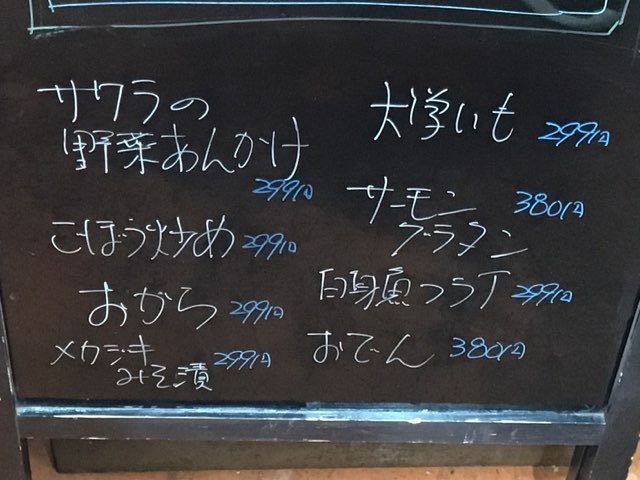 サワラの
野菜あんかけ
299円
ごぼう炒め 299円
おから 299円
メカジキ 299円
みそ漬
大学いも 299円
サーモン 380円
グラタン
白身魚フライ 299円
おでん 380円